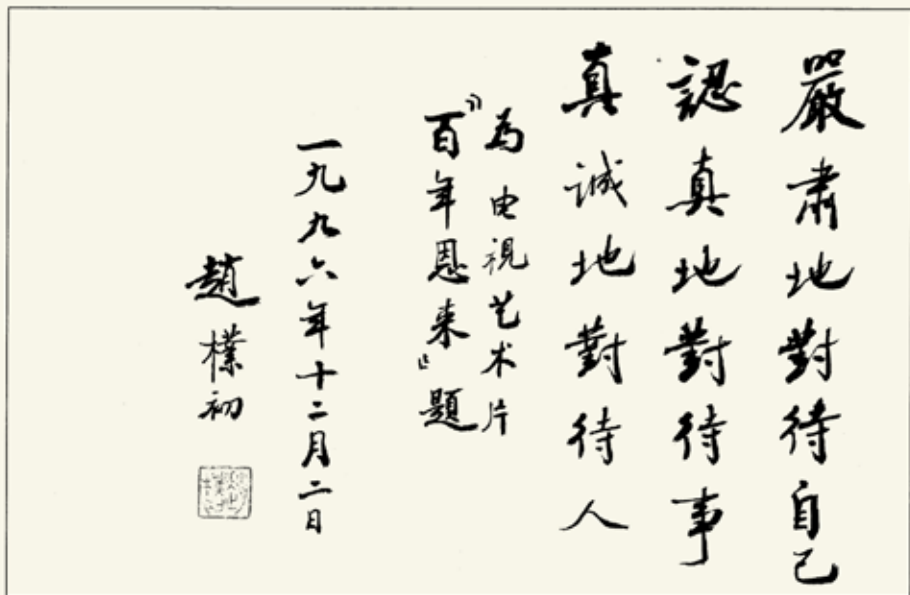 嚴肅地對待自己
認真地對待事
真誠地對待人
为电視艺术片
“百年恩来”題
一九九六年十二月二日
趙樸初